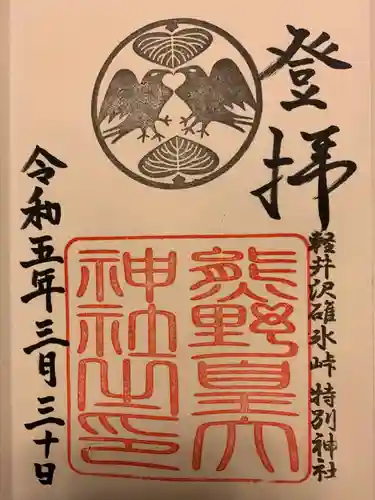 登拝
軽井沢碓氷峠 特別神社
熊野皇大
神社之印
令和五年三月三十日